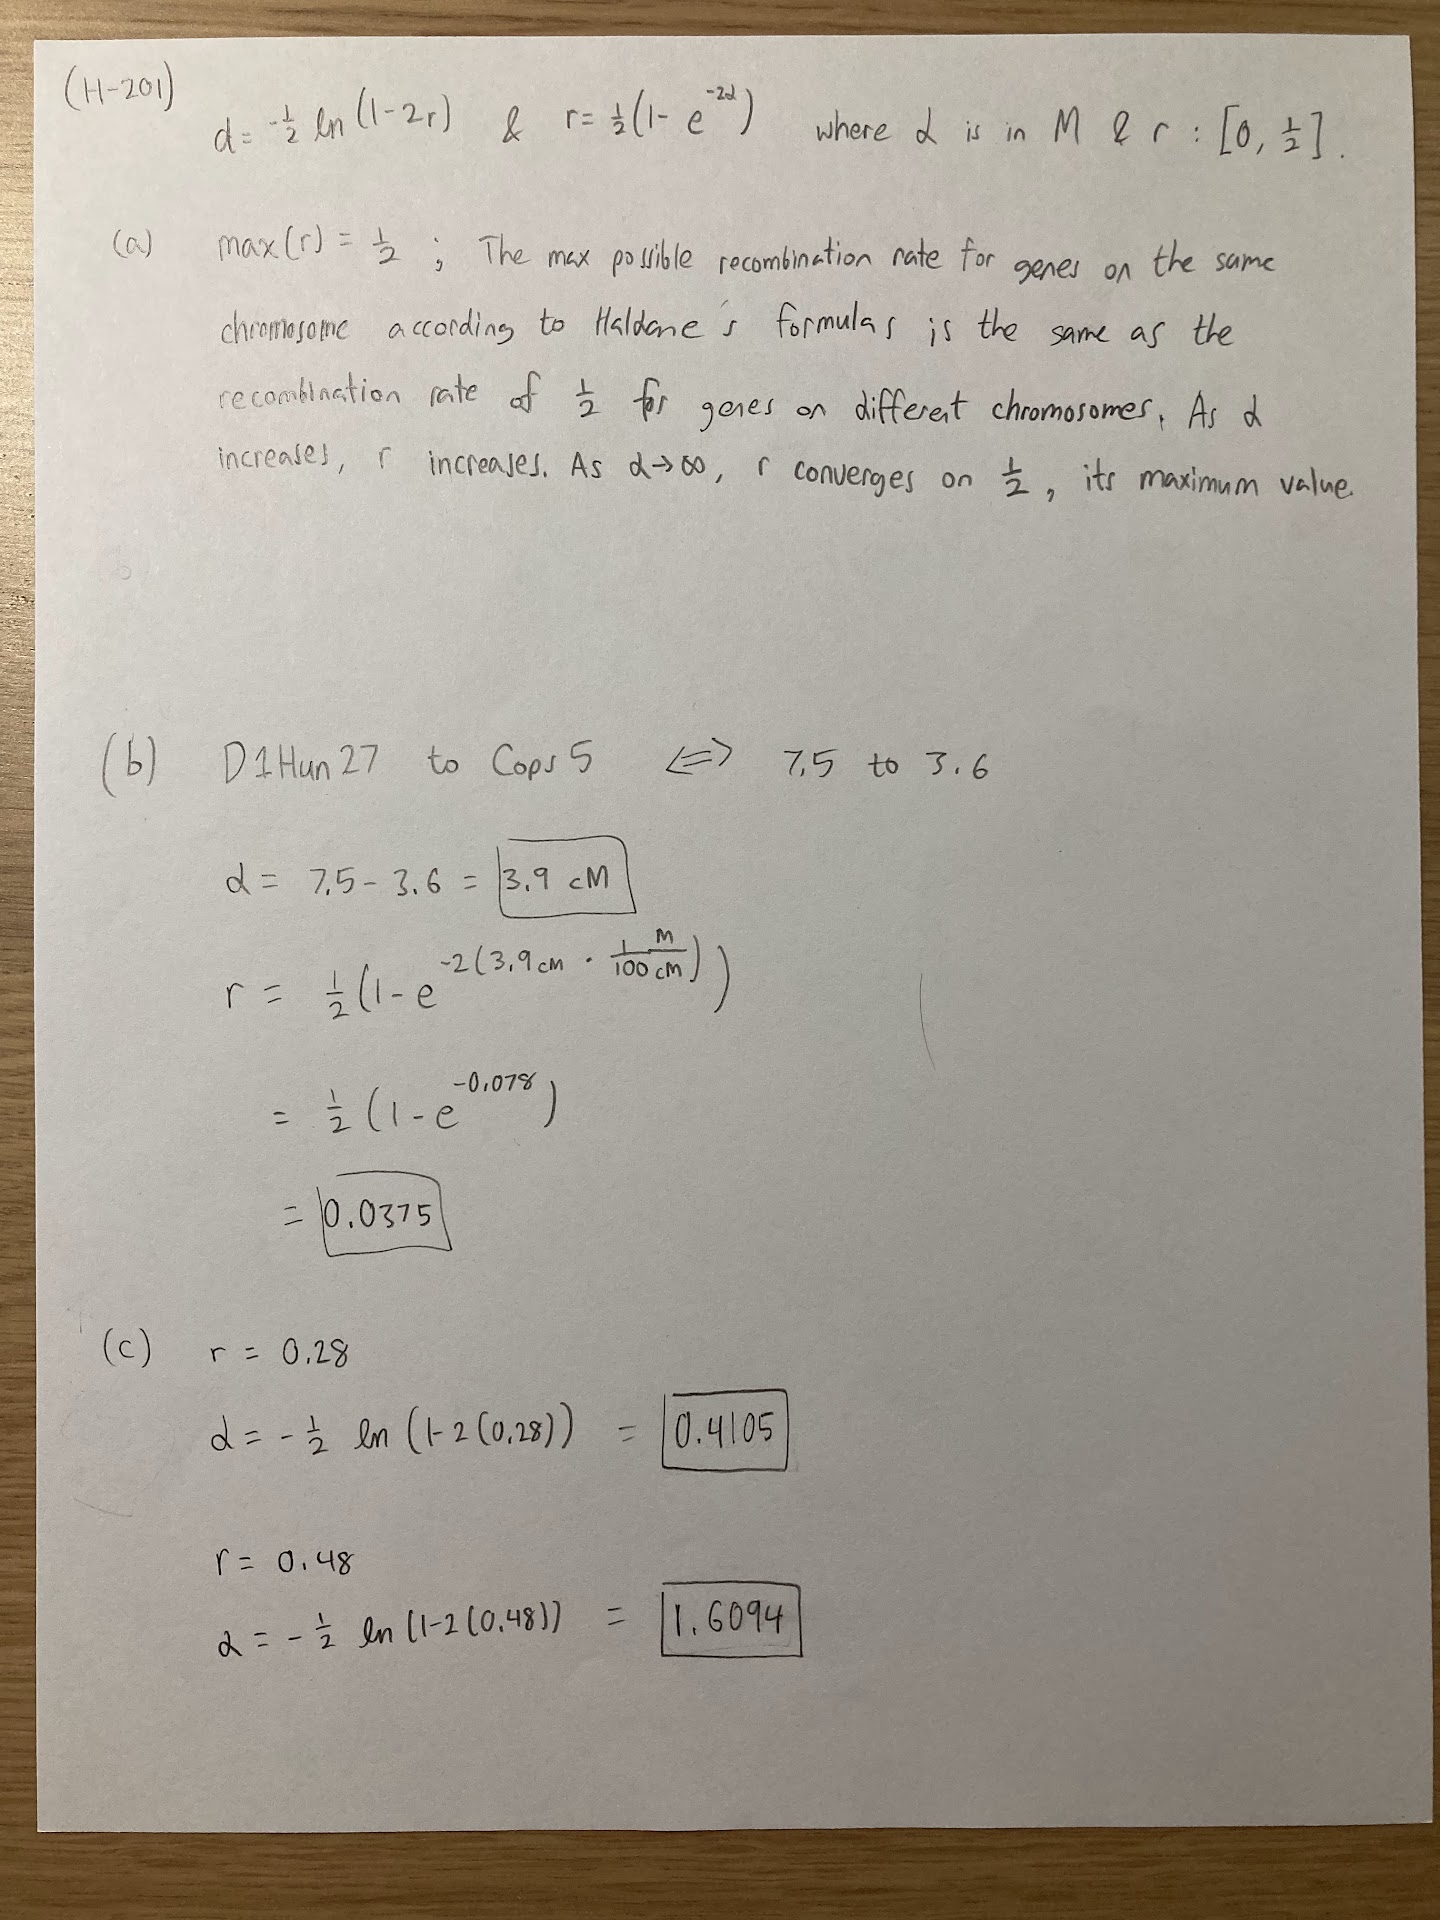 (H-201)
d = -½ ln(1-2r) & r = ½(1-e^{-2d}) where d is in M & r : [0, ½].
(a) max(r) = ½ ; The max possible recombination rate for genes on the same
chromosome according to Haldane's formulas is the same as the
recombination rate of ½ for genes on different chromosomes. As d
increases, r increases. As d→∞, r converges on ½, its maximum value.
(b) D1Hun27 to Cops5 <=> 7.5 to 3.6
d = 7.5 - 3.6 = 3.9 cM
r = ½(1-e^{-2(3.9cM · 1 M/100 cM)})
= ½(1-e^{-0.078})
= 0.0375
(c) r = 0.28
d = -½ ln(1-2(0.28)) = 0.4105
r = 0.48
d = -½ ln(1-2(0.48)) = 1.6094